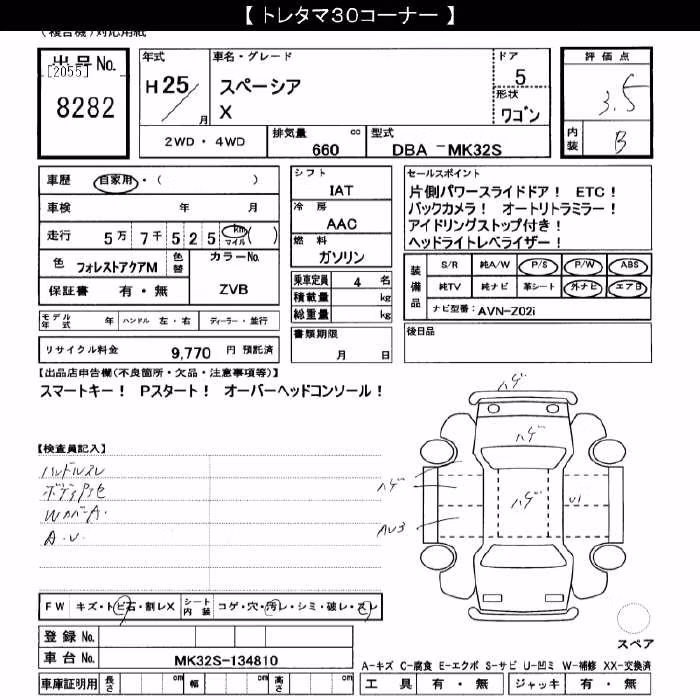 【 トレタマ30コーナー 】
(複合機)対応用紙
出品No.
[2055]
8282
年式
H25/
月
車名・グレード
スペーシア
X
ドア
5
形状
ワゴン
評価点
3.5
内装
B
2WD・4WD
排気量
cc
660
型式
DBA －MK32S
車歴 自家用・( )
車検 年 月
走行 5万 7千 5 2 5 km マイル ( )
色 フォレストアクアM
色替
カラーNo.
ZVB
保証書 有・無
モデル年式 年
ハンドル 左・右
ディーラー・並行
リサイクル料金 9,770 円 預託済
シフト
IAT
冷房
AAC
燃料
ガソリン
乗車定員 4 名
積載量 kg
総重量 kg
書類期限
月 日
セールスポイント
片側パワースライドドア！ ETC！
バックカメラ！ オートリトラミラー！
アイドリングストップ付き！
ヘッドライトレベライザー！
装備品
S/R 純A/W P/S P/W ABS
純TV 純ナビ 革シート 外ナビ エアB
ナビ型番: AVN-Z02i
後日品
【出品店申告欄(不良箇所・欠品・注意事項等)】
スマートキー！ Pスタート！ オーバーヘッドコンソール！
【検査員記入】
ハンドルスレ
WカバーA.
A.U.
ハゲ
ハゲ
ハゲ
ハゲ
U1
AU3
FW キズ・トビ石・割レX
シート内装
コゲ・穴・汚レ・シミ・破レ・スレ
登録No.
車台No. MK32S-134810
車庫証明用 長さ cm 幅 cm 高さ cm
スペア
A-キズ C-腐食 E-エクボ S-サビ U-凹ミ W-補修 XX-交換済
工具 有・無 ジャッキ 有・無